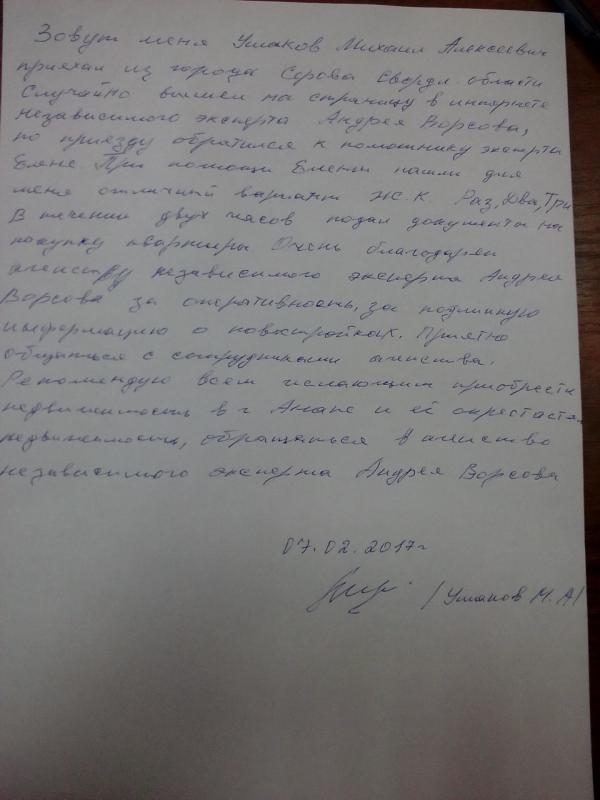 Зовут меня Ушаков Михаил Алексеевич
приехал из города Серова Свердл. области
Случайно вышел на страницу в интернете
независимого эксперта Андрея Ворсова,
по приезду обратился к помошнику эксперта
Елене. При помощи Елены нашли для
меня отличный вариант Ж.К. Раз, Два, Три
В течении двух часов подал документы на
покупку квартиры Очень благодарен
независимого эксперта Андрея
Ворсова за оперативность, за подлинную
информацию о новостройках. Приятно
общаться с сотрудниками агенства.
Рекомендую всем желающим приобрести
недвижимость в г Анапе и её
недвижимость, обращаться в агенство
независимого эксперта Андрея Ворсова
07.02.2017г
/Ушаков М.А/